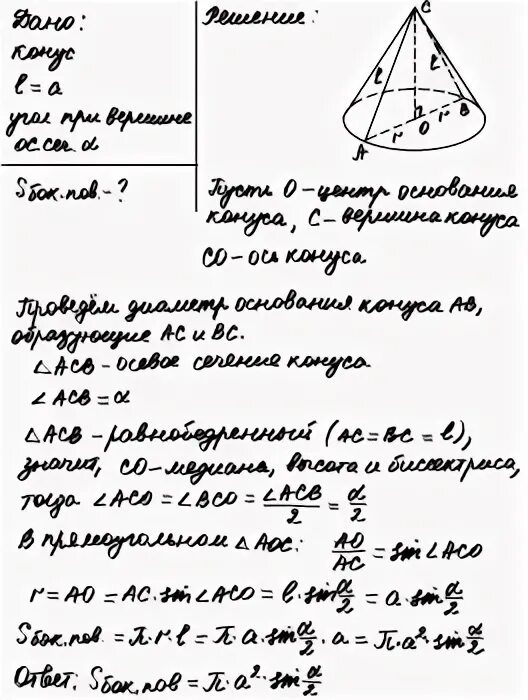 Дано:
конус
l = a
угол при вершине
ос. сеч. α
Sбок.пов. - ?
Решение:
C
l
l
r
O
r
B
A
Пусть O - центр основания
конуса, C - вершина конуса
CO - ось конуса
Проведём диаметр основания конуса AB,
образующие AC и BC.
△ACB - осевое сечение конуса
∠ACB = α
△ACB - равнобедренный (AC = BC = l),
значит, CO - медиана, высота и биссектриса,
тогда ∠ACO = ∠BCO = ∠ACB/2 = α/2
В прямоугольном △AOC: AO/AC = sin∠ACO
r = AO = AC · sin∠ACO = l · sin α/2 = a · sin α/2
Sбок.пов. = π · r · l = π · a · sin α/2 · a = π · a² · sin α/2
Ответ: Sбок.пов = π · a² · sin α/2